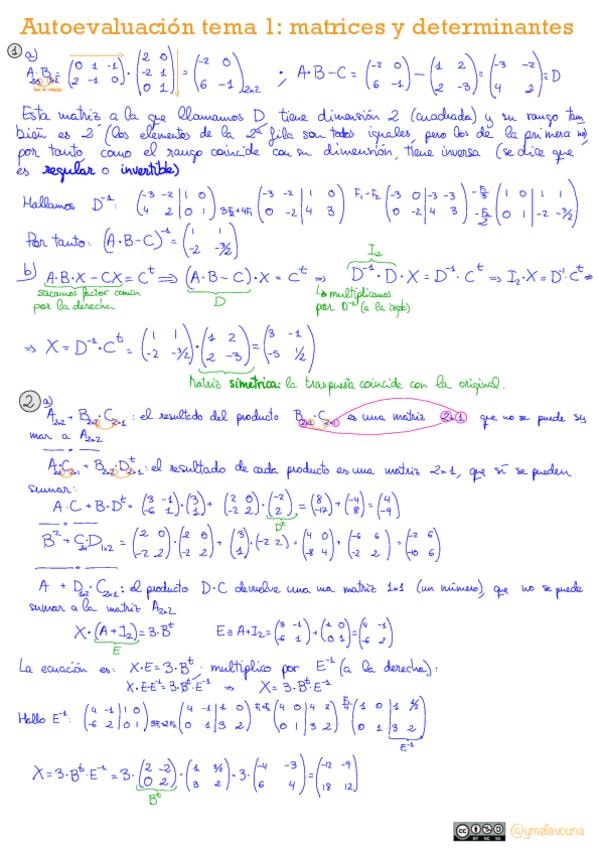 Autoevaluación tema 1: matrices y determinantes
① a)
A·B = (0 1 -1; 2 -1 0) · (2 0; -2 1; 0 1) = (-2 0; 6 -1)2x2 ; A·B-C = (-2 0; 6 -1) - (1 2; 2 -3) = (-3 -2; 4 2) = D
Esta matriz a la que llamamos D tiene dimensión 2 (cuadrada) y su rango tam
bién es 2 (los elementos de la 2ª fila son todos iguales, pero los de la primera no)
por tanto, como el rango coincide con su dimensión, tiene inversa (se dice que
es regular o invertible)
Hallamos D⁻¹: (-3 -2 | 1 0; 4 2 | 0 1) 3F2+4F1 (-3 -2 | 1 0; 0 -2 | 4 3) F1-F2 (-3 0 | -3 -3; 0 -2 | 4 3) (1 0 | 1 1; 0 1 | -2 -3/2)
Por tanto: (A·B-C)⁻¹ = (1 1; -2 -3/2)
I2
b) A·B·X - CX = Cᵗ ⇒ (A·B-C)·X = Cᵗ ⇒ D⁻¹·D·X = D⁻¹·Cᵗ ⇒ I2·X = D⁻¹·Cᵗ ⇒
sacamos factor común
por la derecha
D
multiplicamos
por D⁻¹ (a la izqda)
⇒ X = D⁻¹·Cᵗ = (1 1; -2 -3/2) · (1 2; 2 -3) = (3 -1; -5 1/2)
Matriz simétrica: la traspuesta coincide con la original.
② a)
A2x2 + B2x2·C2x1: el resultado del producto B2x2·C2x1 es una matriz 2x1 que no se puede su
mar a A2x2
A·C + B·Dᵗ: el resultado de cada producto es una matriz 2x1, que sí se pueden
sumar:
A·C + B·Dᵗ = (3 -1; -6 1)·(3; 1) + (2 0; -2 2)·(-2; 2) = (8; -17) + (-4; 8) = (4; -9)
Dᵗ
B² + C·D1x2 = (2 0; -2 2)·(2 0; -2 2) + (3; 1)·(-2 2) = (4 0; -8 4) + (-6 6; -2 2) = (-2 6; -10 6)
A + D1x2·C2x1: el producto D·C devuelve una matriz 1x1 (un número), que no se puede
sumar a la matriz A2x2
X·(A+I2) = 3·Bᵗ E = A+I2 = (3 -1; -6 1) + (1 0; 0 1) = (4 -1; -6 2)
E
La ecuación es: X·E = 3·Bᵗ multiplico por E⁻¹ (a la derecha):
X·E·E⁻¹ = 3·Bᵗ·E⁻¹ ⇒ X = 3·Bᵗ·E⁻¹
Hallo E⁻¹: (4 -1 | 1 0; -6 2 | 0 1) (4 -1 | 1 0; 0 1 | 3 2) F1+F2 (4 0 | 4 2; 0 1 | 3 2) (1 0 | 1 1/2; 0 1 | 3 2)
E⁻¹
X = 3·Bᵗ·E⁻¹ = 3·(2 -2; 0 2)·(1 1/2; 3 2) = 3·(-4 -3; 6 4) = (-12 -9; 18 12)
Bᵗ
@ymellevouna